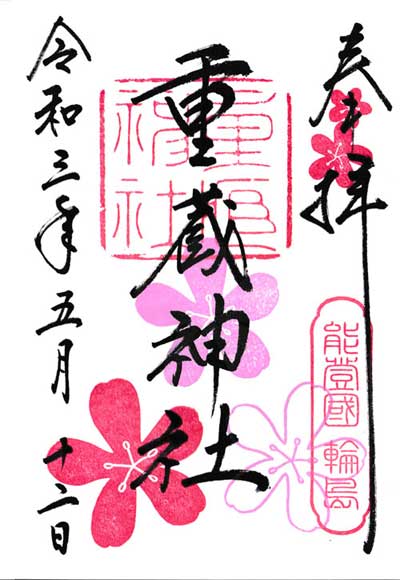 奉拝
能登國 輪島
重蔵神社
令和三年五月十二日